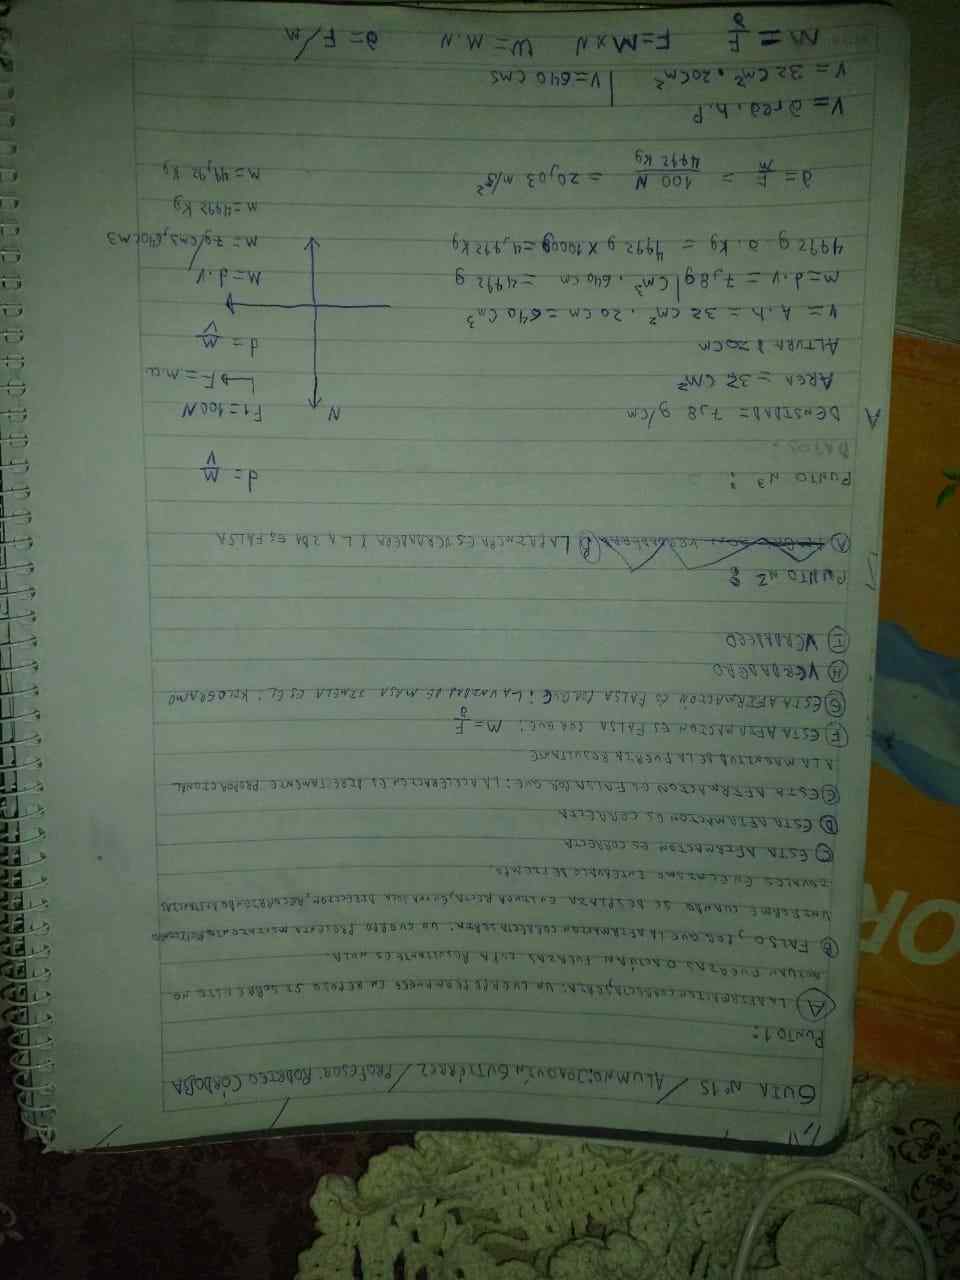 GUIA Nº 15 / ALUMNO: JOAQUÍN GUTIÉRREZ / PROFESOR: RODRIGO CÓRDOBA
PUNTO 1:
Ⓐ LA AFIRMACION CORRECTA SERIA: UN CUERPO PERMANECE EN REPOSO SI SOBRE ESTE NO
ACTUAN FUERZAS O ACTÚAN FUERZAS CUYA RESULTANTE ES NULA.
Ⓑ FALSO, PORQUE LA AFIRMACION CORRECTA SERIA: UN CUERPO PRESENTA MOVIMIENTO RECTILINEO
UNIFORME CUANDO SE DESPLAZA EN LINEA RECTA, EN UNA SOLA DIRECCION, RECORRIENDO DISTANCIAS
IGUALES EN EL MISMO INTERVALO DE TIEMPO.
Ⓒ ESTA AFIRMACION ES CORRECTA
Ⓓ ESTA AFIRMACION ES CORRECTA
Ⓔ ESTA AFIRMACION ES FALSA POR QUE: LA ACELERACION ES DIRECTAMENTE PROPORCIONAL
A LA MAGNITUD DE LA FUERZA RESULTANTE
Ⓕ ESTA AFIRMACION ES FALSA PORQUE: M = F/a
Ⓖ ESTA AFIRMACION ES FALSA PORQUE: LA UNIDAD DE MASA SIMELA ES EL: KILOGRAMO
Ⓗ VERDADERO
Ⓘ VERDADERO
PUNTO N2:
Ⓐ Ⓑ LA PRIMERA ES VERDADERA Y LA 2DA ES FALSA
PUNTO N3: d = M/V
DATOS:
A DENSIDAD = 7,8 g/cm N F1 = 100N
AREA = 32 CM² F = m.a
ALTURA: 20CM d = M/V
V = A.h = 32 cm². 20 cm = 640 cm³
m = d.v = 7,8g/cm³. 640 cm = 4992 g M = d.v
4992 g a. kg = 4992 g x 1000g = 4,992 kg m = 7g/cm3,640cm3
m = 4992 kg
a = F/m = 100 N/4992 kg = 20,03 m/s² m = 49,92 kg
V = area.h.P
V = 32 cm². 20cm² | V = 640 cms
M = F/a F = M x N W = M.N a = F/M
OR